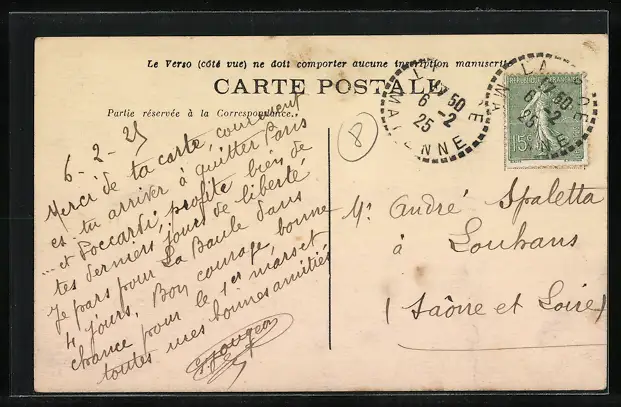 Le Verso (côté vue) ne doit comporter aucune inscription manuscrite
CARTE POSTALE
Partie réservée à la Correspondance.
6-2-25
Merci de ta carte, comment
es tu arriver à quitter Paris
... et Poccardi, profite bien de
tes derniers jours de liberté
Je pars pour La Baule dans
4 jours. Bon courage, bonne
chance pour le 1er mars et
toutes mes bonnes amitiés
8
Mr André Spaletta
à
Louhans
(Saône et Loire)
17 50
6 -2
25
MAYENNE
17 50
6 -2
25
REPUBLIQUE FRANÇAISE
15c